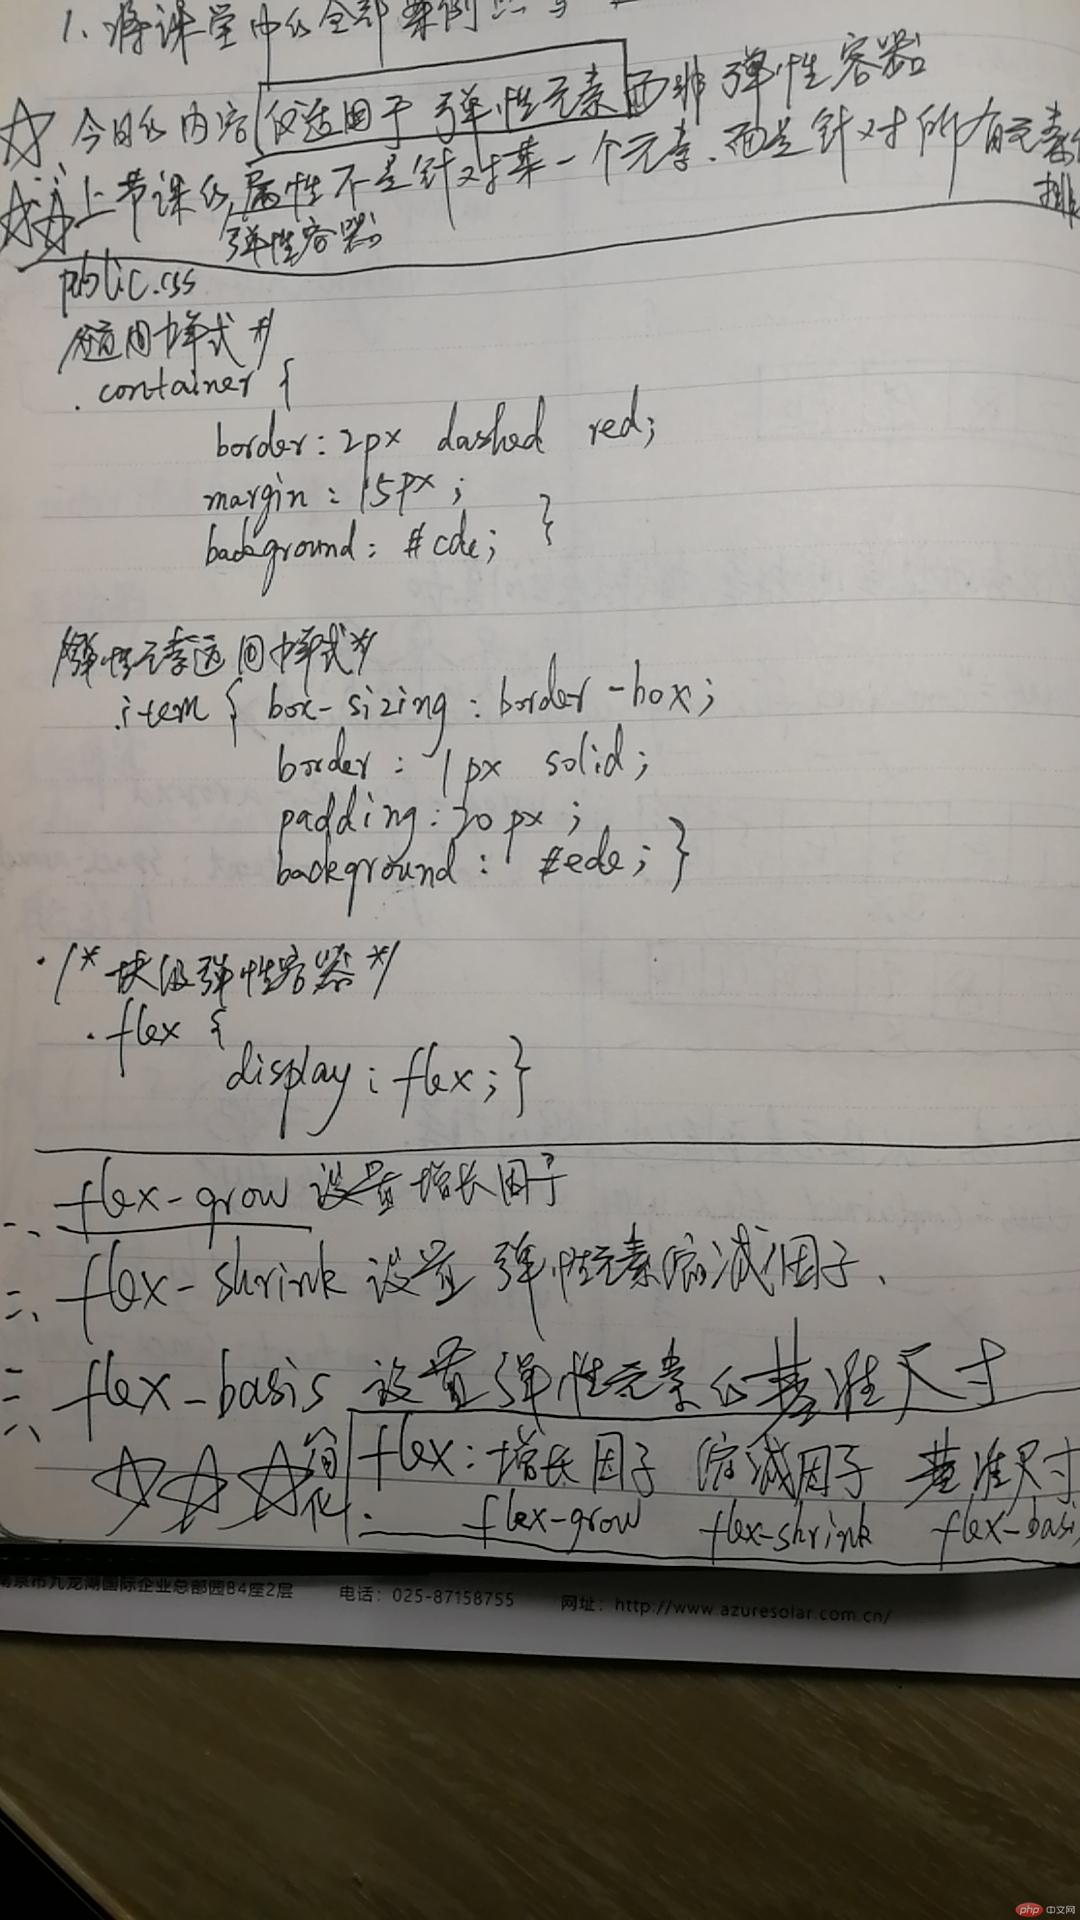 1、将课堂中的全部案例
☆ 今日的内容仅适用于弹性元素而非弹性容器
☆☆ 上节课的属性不是针对某一个元素、而是针对所有元素的
排
弹性容器
public.css
/*通用样式*/
.container {
border: 2px dashed red;
margin: 15px;
background: #cde; }
/*弹性元素通用样式*/
.item { box-sizing: border-box;
border: 1px solid;
padding: 20px;
background: #ede; }
/*块级弹性容器*/
.flex {
display: flex; }
一、flex-grow 设置增长因子
二、flex-shrink 设置弹性元素缩减因子、
三、flex-basis 设置弹性元素的基准尺寸
☆☆☆ 简化. flex: 增长因子 缩减因子 基准尺寸
flex-grow flex-shrink flex-basi
南京市九龙湖国际企业总部园B4座2层 电话：025-87158755 网址：http://www.azuresolar.com.cn/
php 中文网